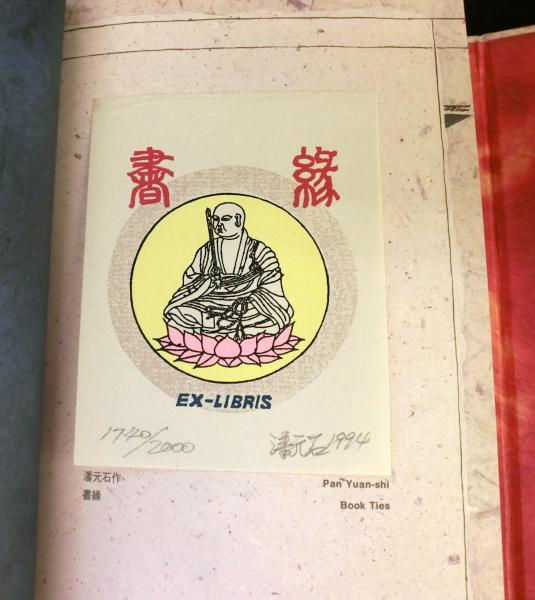 書緣
EX-LIBRIS
1740/2000 潘元石1994
潘元石作 Pan Yuan-shi
書緣 Book Ties